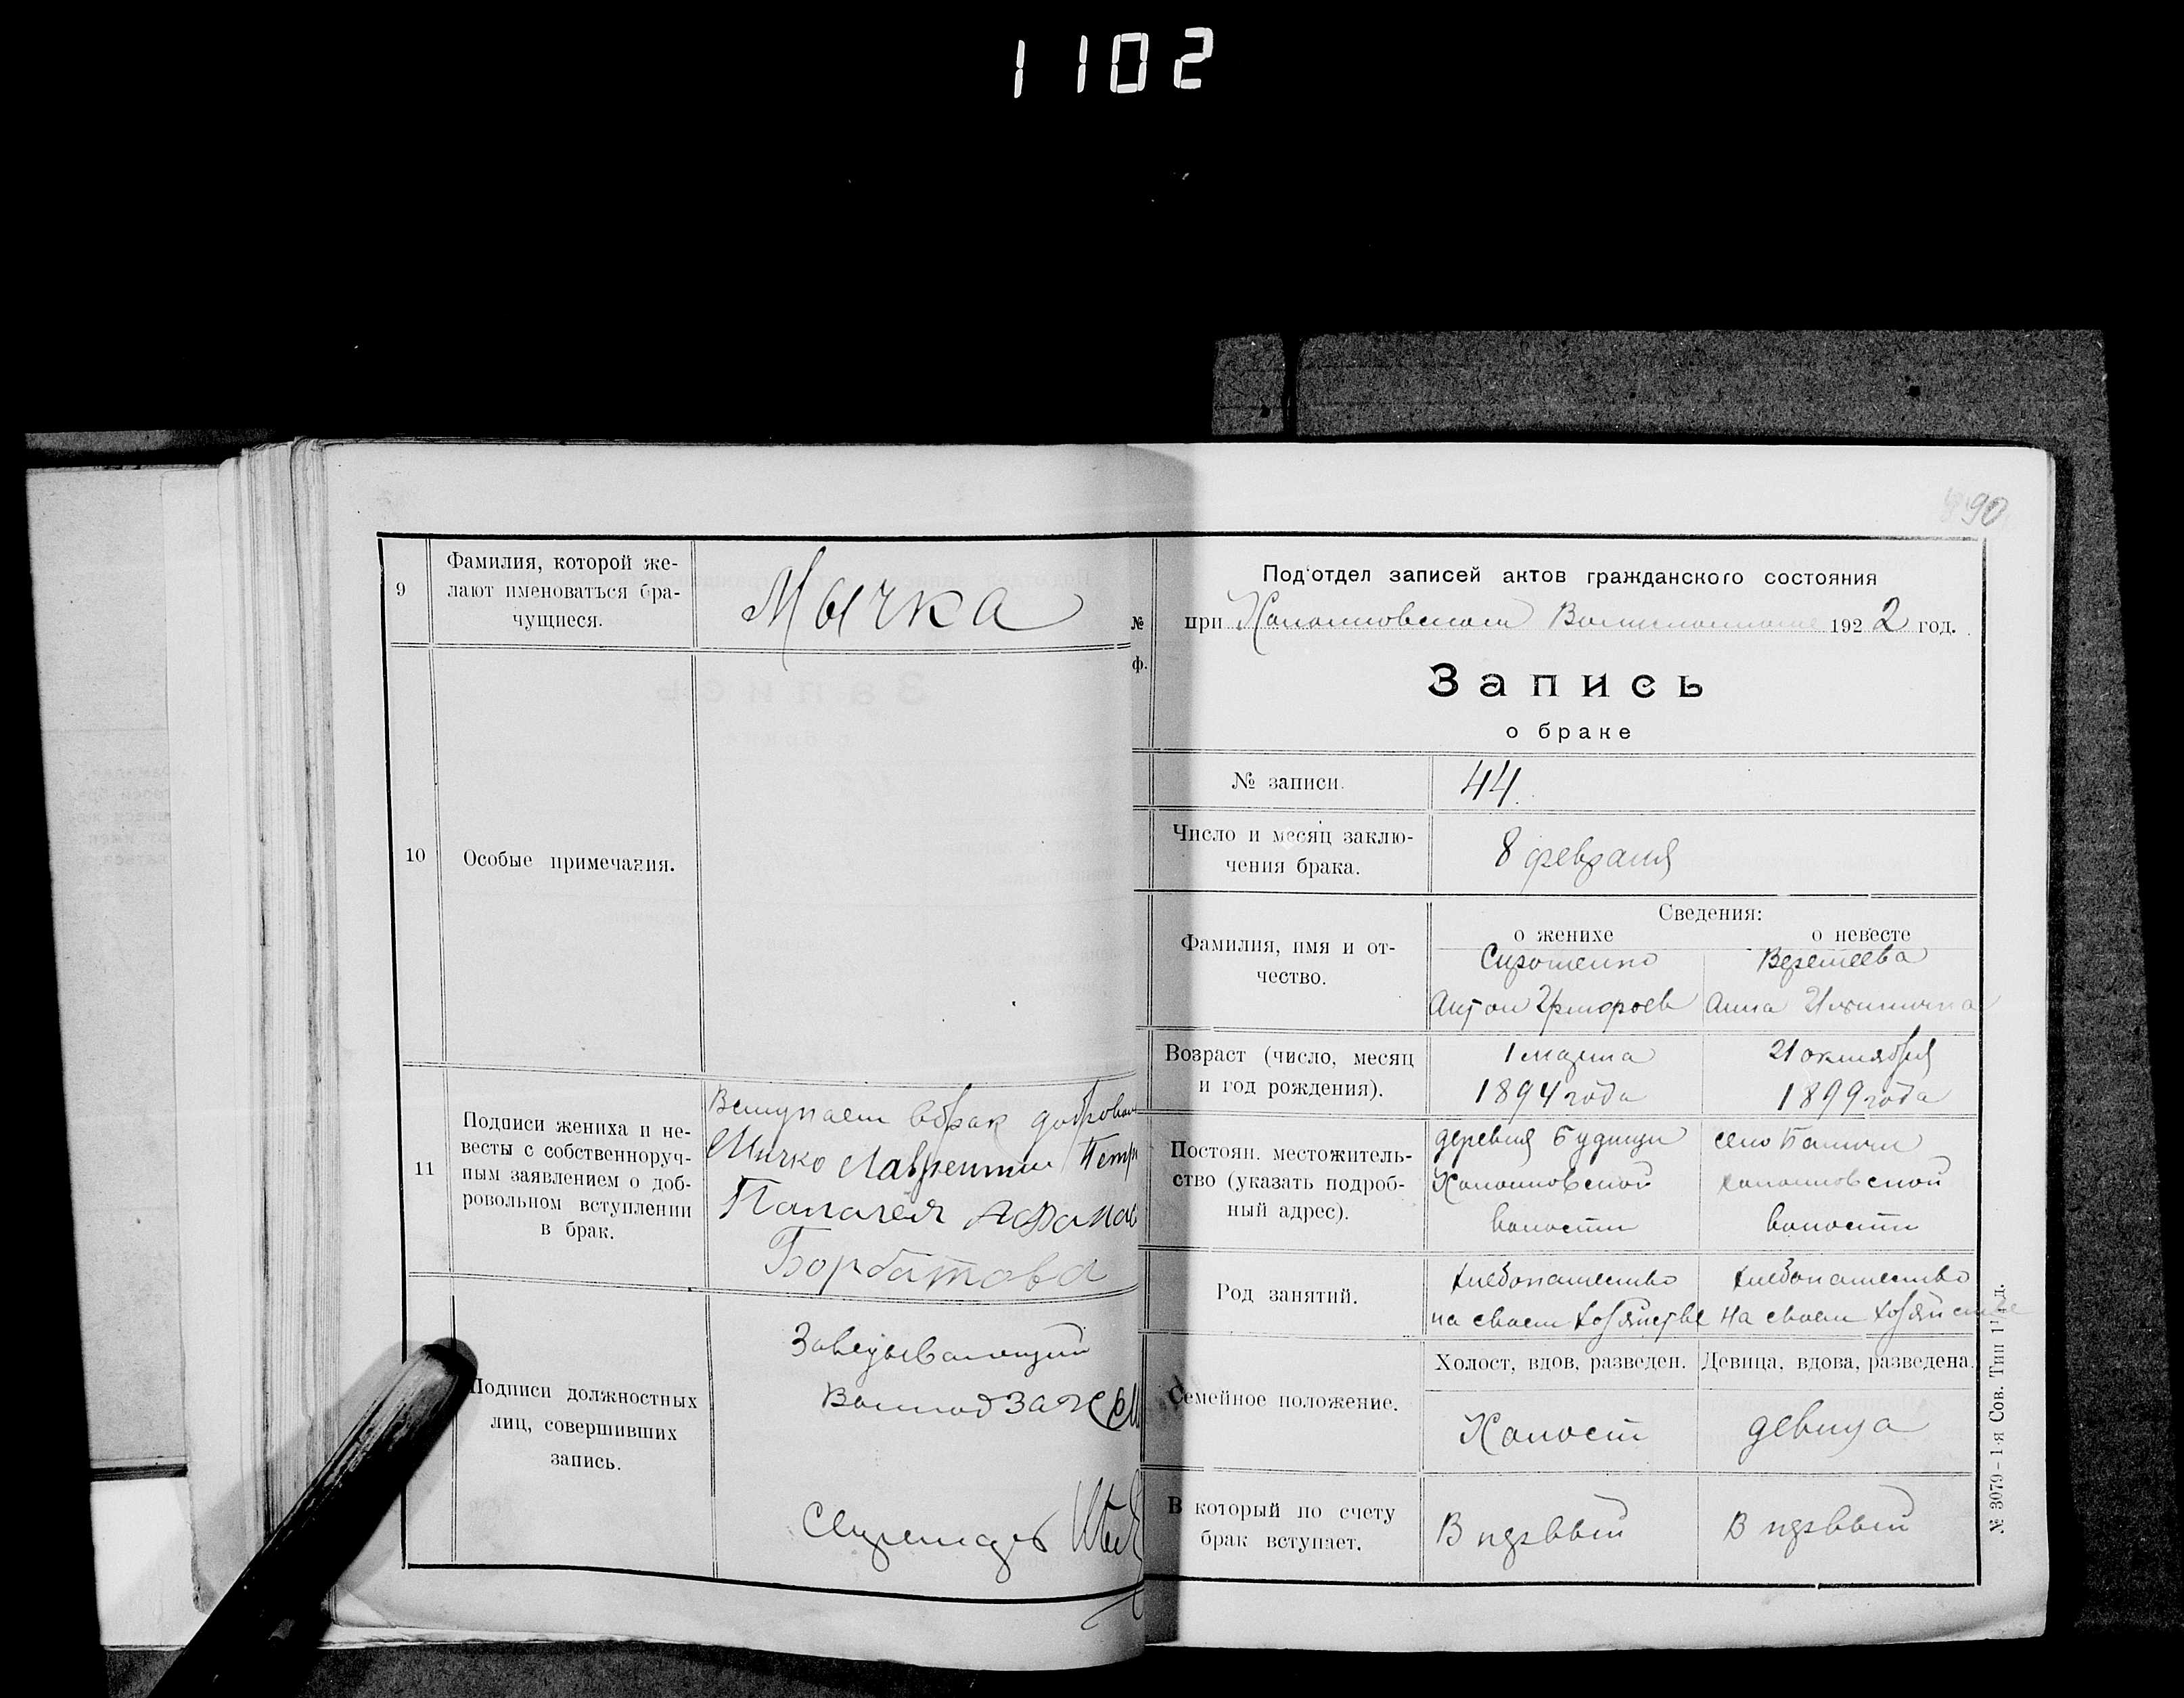 1102
90
9
Фамилия, которой же-
лают именоваться бра-
чущиеся.
Мычка
10
Особые примечания.
11
Подписи жениха и не-
весты с собственноруч-
ным заявлением о доб-
ровольном вступлении
в брак.
Вступаем в брак добровол
Мичко Лаврентии Петр
Палагея
Борбатова
Подписи должностных
лиц, совершивших
запись.
Заведывающий
Волподзагс
№
ф.
Под'отдел записей актов гражданского состояния
при 1922 год.
Запись
о браке
№ записи.
44.
Число и месяц заклю-
чения брака.
8 февраля
Сведения:
о женихе
о невесте
Фамилия, имя и от-
чество.
Сирошенко
Веремеева
Антон
Анна
Возраст (число, месяц
и год рождения).
1 марта
1894 года
21 октября
1899 года
Постоян. местожитель-
ство (указать подроб-
ный адрес).
деревня Будищи
волости
село
волости
Род занятий.
хлебопашество
на своем хозяйстве
хлебопашество
на своем хозяйстве
Семейное положение.
Холост, вдов, разведен.
Девица, вдова, разведена.
Холост
девица
В который по счету
брак вступает.
В первый
В первый
№ 3079 – 1-я Сов. Тип